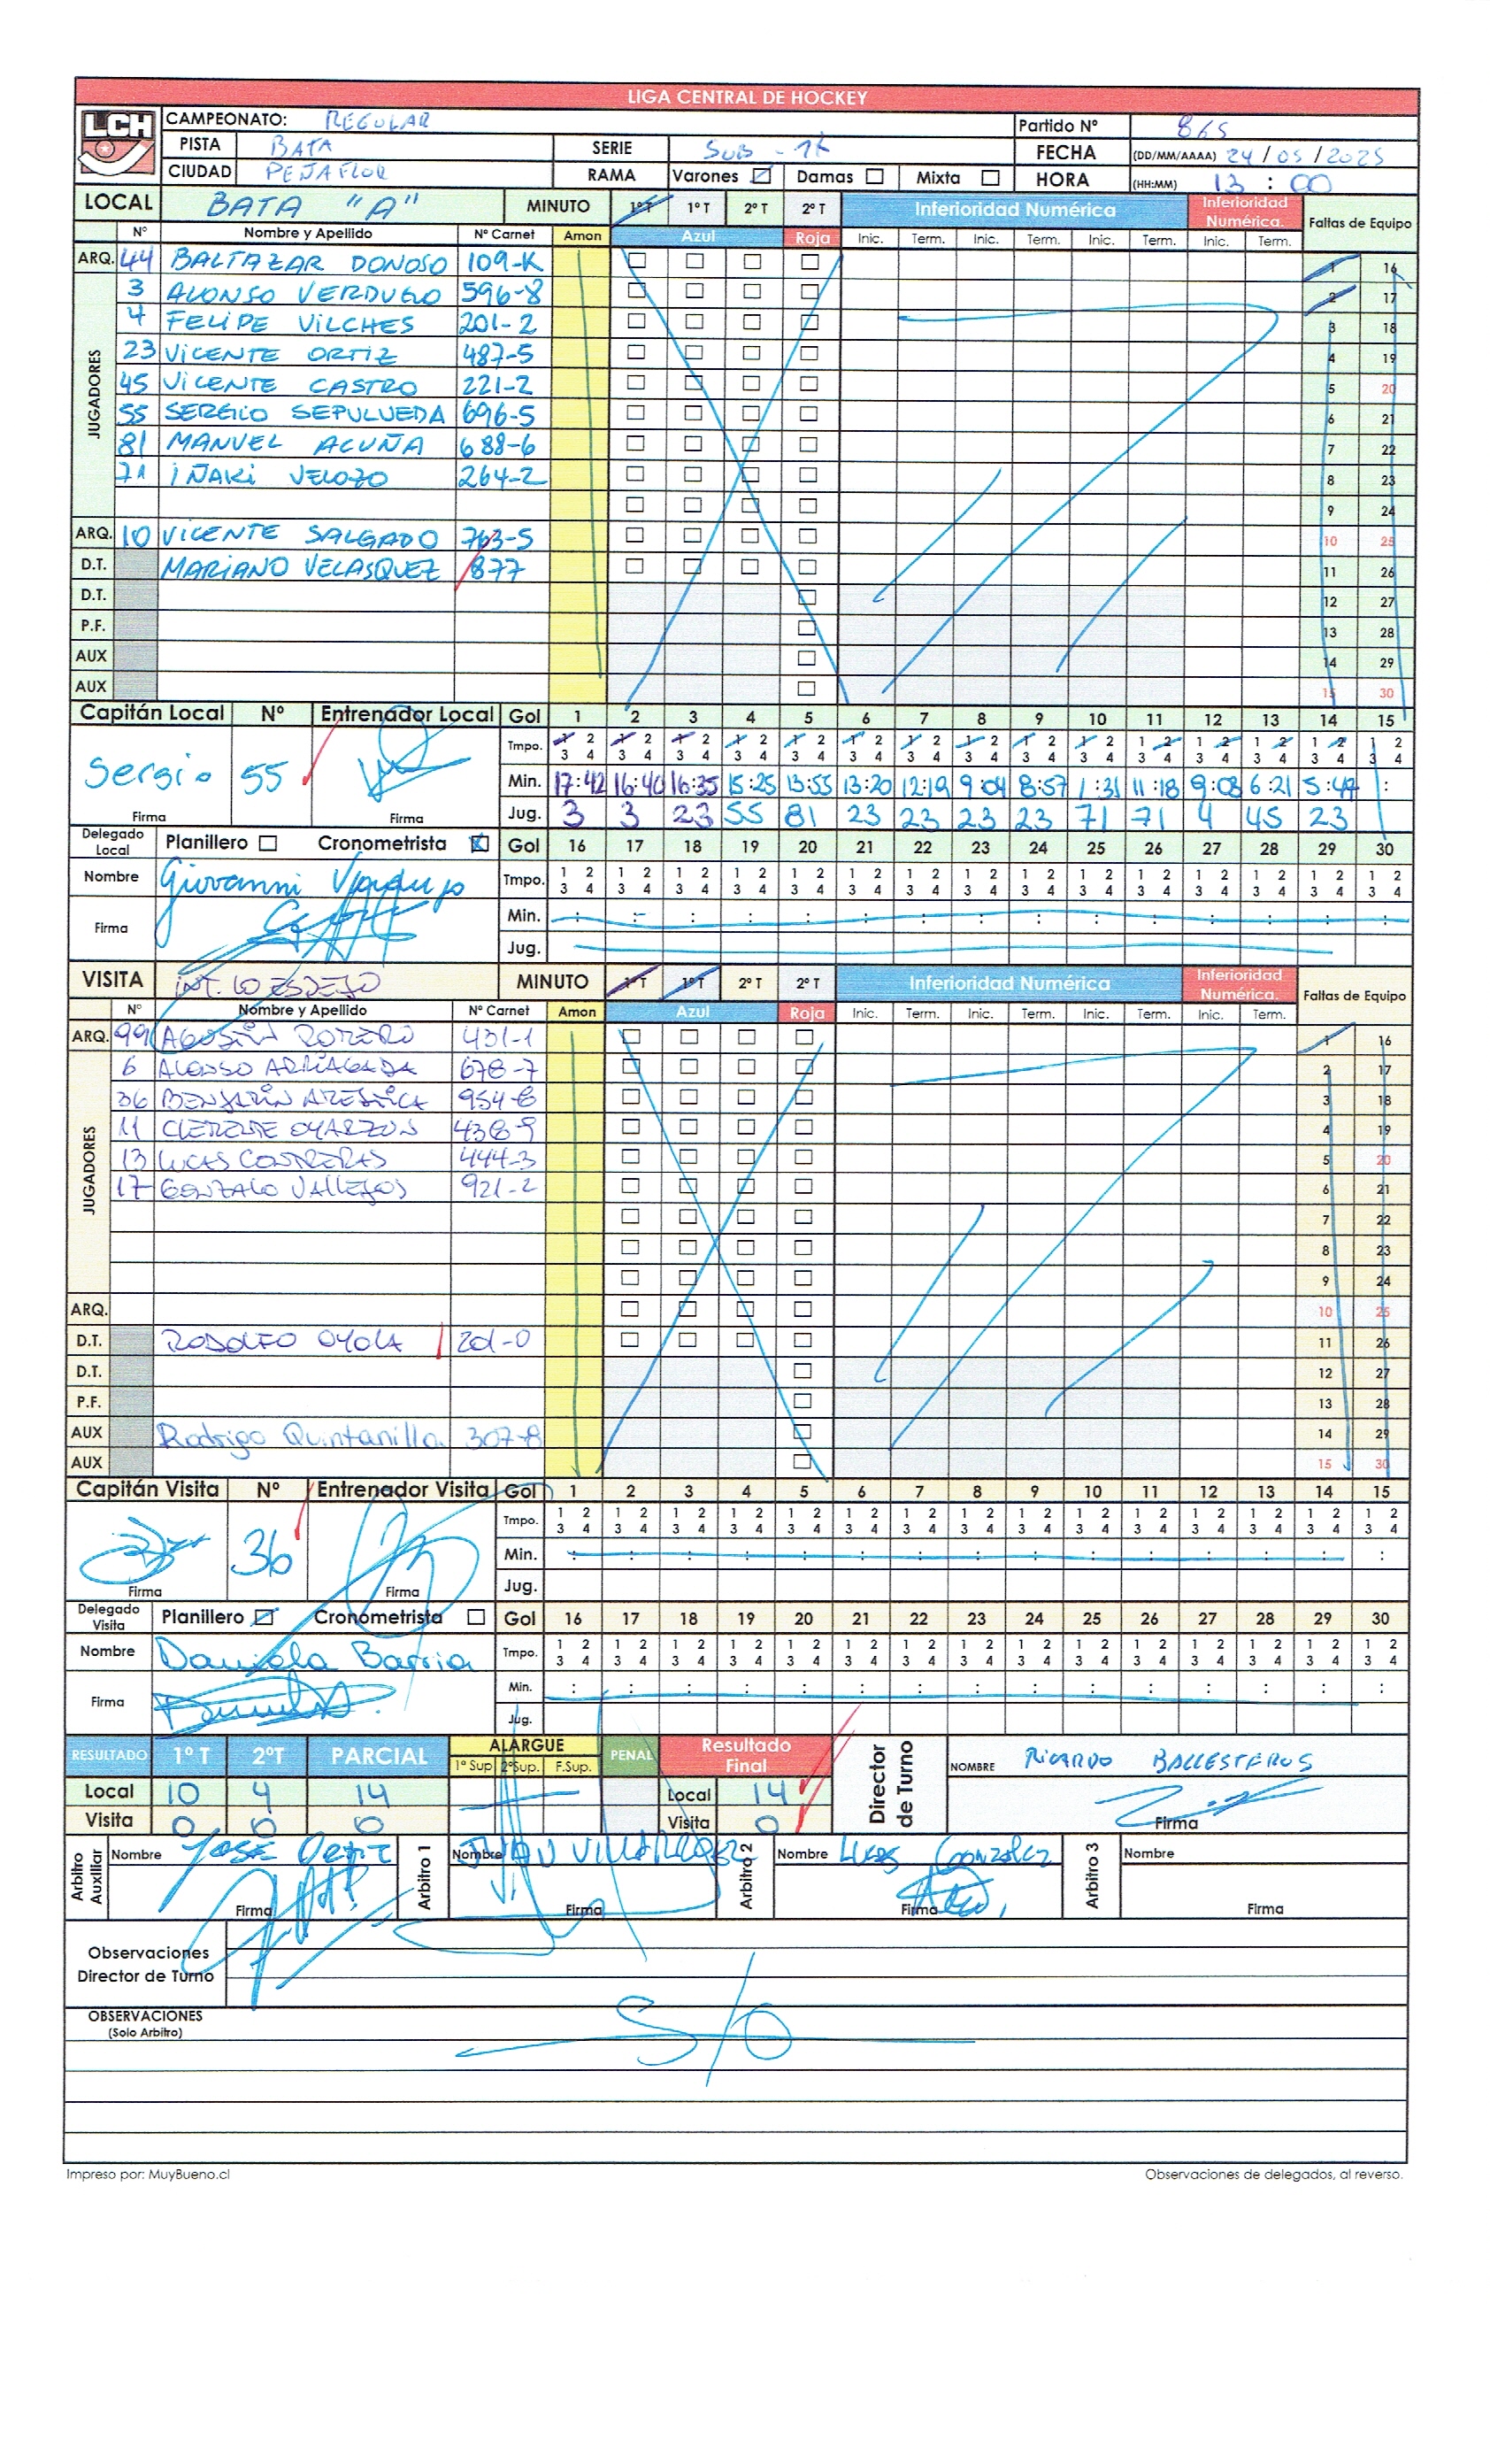 LIGA CENTRAL DE HOCKEY
LCH
CAMPEONATO: REGULAR Partido Nº 865
PISTA BATA SERIE SUB - FECHA (DD/MM/AAAA) 24 / 05 / 2025
CIUDAD PEÑAFLOR RAMA Varones Damas Mixta HORA (HH:MM) 13 : 00
LOCAL BATA "A" MINUTO 1º T 1º T 2º T 2º T Inferioridad Numérica Inferioridad Numérica. Faltas de Equipo
Nº Nombre y Apellido Nº Carnet Amon Azul Roja Inic. Term. Inic. Term. Inic. Term. Inic. Term.
ARQ. 44 BALTAZAR DONOSO 109-K 1 16
JUGADORES
3 ALONSO VERDUGO 596-8 2 17
4 FELIPE VILCHES 201-2 3 18
23 VICENTE ORTIZ 487-5 4 19
45 VICENTE CASTRO 221-2 5 20
55 SERGIO SEPULVEDA 696-5 6 21
81 MANUEL ACUÑA 688-6 7 22
71 IÑAKI VELOZO 264-2 8 23
9 24
ARQ. 10 VICENTE SALGADO 763-5 10 25
D.T. MARIANO VELASQUEZ 877 11 26
D.T. 12 27
P.F. 13 28
AUX 14 29
AUX 15 30
Capitán Local Nº Entrenador Local Gol 1 2 3 4 5 6 7 8 9 10 11 12 13 14 15
Tmpo. 1 2 1 2 1 2 1 2 1 2 1 2 1 2 1 2 1 2 1 2 1 2 1 2 1 2 1 2 1 2
3 4 3 4 3 4 3 4 3 4 3 4 3 4 3 4 3 4 3 4 3 4 3 4 3 4 3 4 3 4
Sergio 55 Min. 17:42 16:40 16:35 15:25 13:55 13:20 12:19 9:04 8:57 1:31 11:18 9:08 6:21 5:47 :
Firma Firma Jug. 3 3 23 55 81 23 23 23 23 71 71 4 45 23
Delegado Local Planillero Cronometrista Gol 16 17 18 19 20 21 22 23 24 25 26 27 28 29 30
Nombre Giovanni Tmpo. 1 2 1 2 1 2 1 2 1 2 1 2 1 2 1 2 1 2 1 2 1 2 1 2 1 2 1 2 1 2
3 4 3 4 3 4 3 4 3 4 3 4 3 4 3 4 3 4 3 4 3 4 3 4 3 4 3 4 3 4
Firma Min. : : : : : : : : : : : : : : :
Jug.
VISITA INT. LO ESPEJO MINUTO 1º T 1º T 2º T 2º T Inferioridad Numérica Inferioridad Numérica. Faltas de Equipo
Nº Nombre y Apellido Nº Carnet Amon Azul Roja Inic. Term. Inic. Term. Inic. Term. Inic. Term.
ARQ. 99 AGUSTIN ROMERO 431-1 1 16
JUGADORES
6 ALONSO ARRIAGADA 678-7 2 17
36 BENJAMIN 954-8 3 18
11 CLEMENTE OYARZUN 438-9 4 19
13 LUCAS CONTRERAS 444-3 5 20
17 GONZALO VALLEJOS 921-2 6 21
7 22
8 23
9 24
ARQ. 10 25
D.T. RODOLFO OYOLA 201-0 11 26
D.T. 12 27
P.F. 13 28
AUX Rodrigo Quintanilla 307-8 14 29
AUX 15 30
Capitán Visita Nº Entrenador Visita Gol 1 2 3 4 5 6 7 8 9 10 11 12 13 14 15
Tmpo. 1 2 1 2 1 2 1 2 1 2 1 2 1 2 1 2 1 2 1 2 1 2 1 2 1 2 1 2 1 2
3 4 3 4 3 4 3 4 3 4 3 4 3 4 3 4 3 4 3 4 3 4 3 4 3 4 3 4 3 4
36 Min. : : : : : : : : : : : : : : :
Firma Firma Jug.
Delegado Visita Planillero Cronometrista Gol 16 17 18 19 20 21 22 23 24 25 26 27 28 29 30
Nombre Daniela Barria Tmpo. 1 2 1 2 1 2 1 2 1 2 1 2 1 2 1 2 1 2 1 2 1 2 1 2 1 2 1 2 1 2
3 4 3 4 3 4 3 4 3 4 3 4 3 4 3 4 3 4 3 4 3 4 3 4 3 4 3 4 3 4
Firma Min. : : : : : : : : : : : : : : :
Jug.
RESULTADO 1º T 2ºT PARCIAL ALARGUE 1º Sup 2ºSup. F.Sup. PENAL Resultado Final Director de Turno NOMBRE RICARDO BALLESTEROS
Local 10 4 14 Local 14
Visita 0 0 0 Visita 0 Firma
Arbitro Auxiliar Nombre JOSE ORTIZ Arbitro 1 Nombre JUAN VILLARROEL Arbitro 2 Nombre LUCAS GONZALEZ Arbitro 3 Nombre
Firma Firma Firma Firma
Observaciones
Director de Turno
OBSERVACIONES
(Solo Arbitro)
S/O
Impreso por: MuyBueno.cl Observaciones de delegados, al reverso.